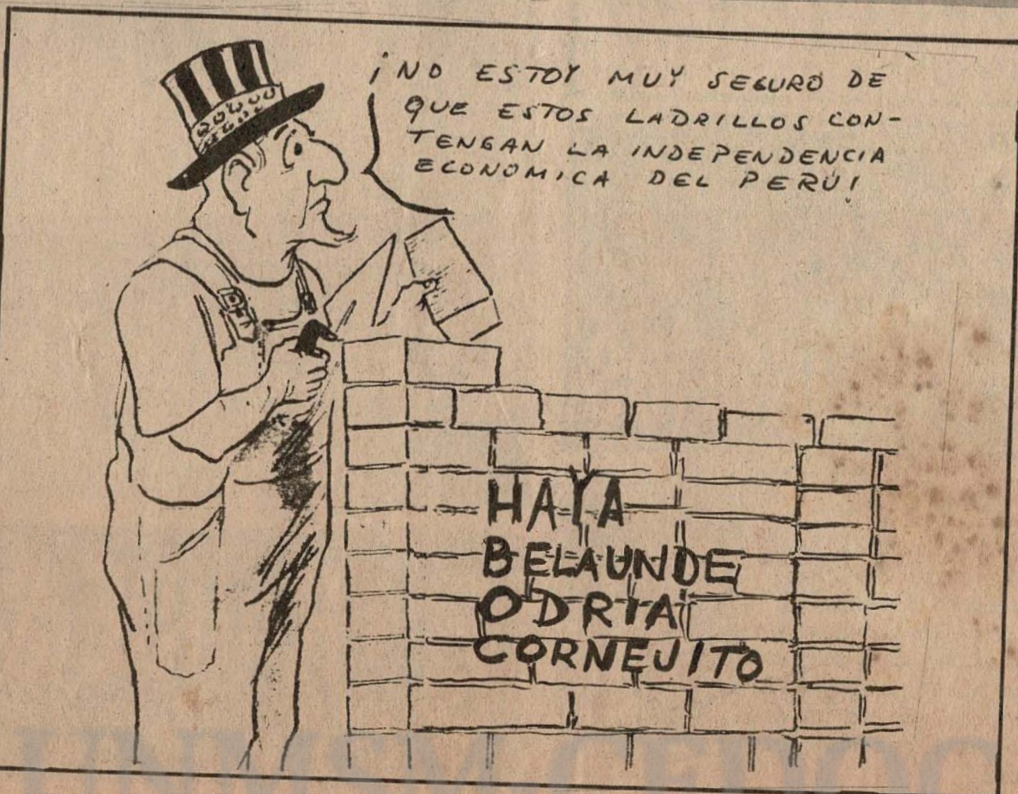 ¡NO ESTOY MUY SEGURO DE
QUE ESTOS LADRILLOS CON-
TENGAN LA INDEPENDENCIA
ECONOMICA DEL PERÚ!
HAYA
BELAUNDE
ODRIA
CORNEJITO
UNMSM-CEDOC